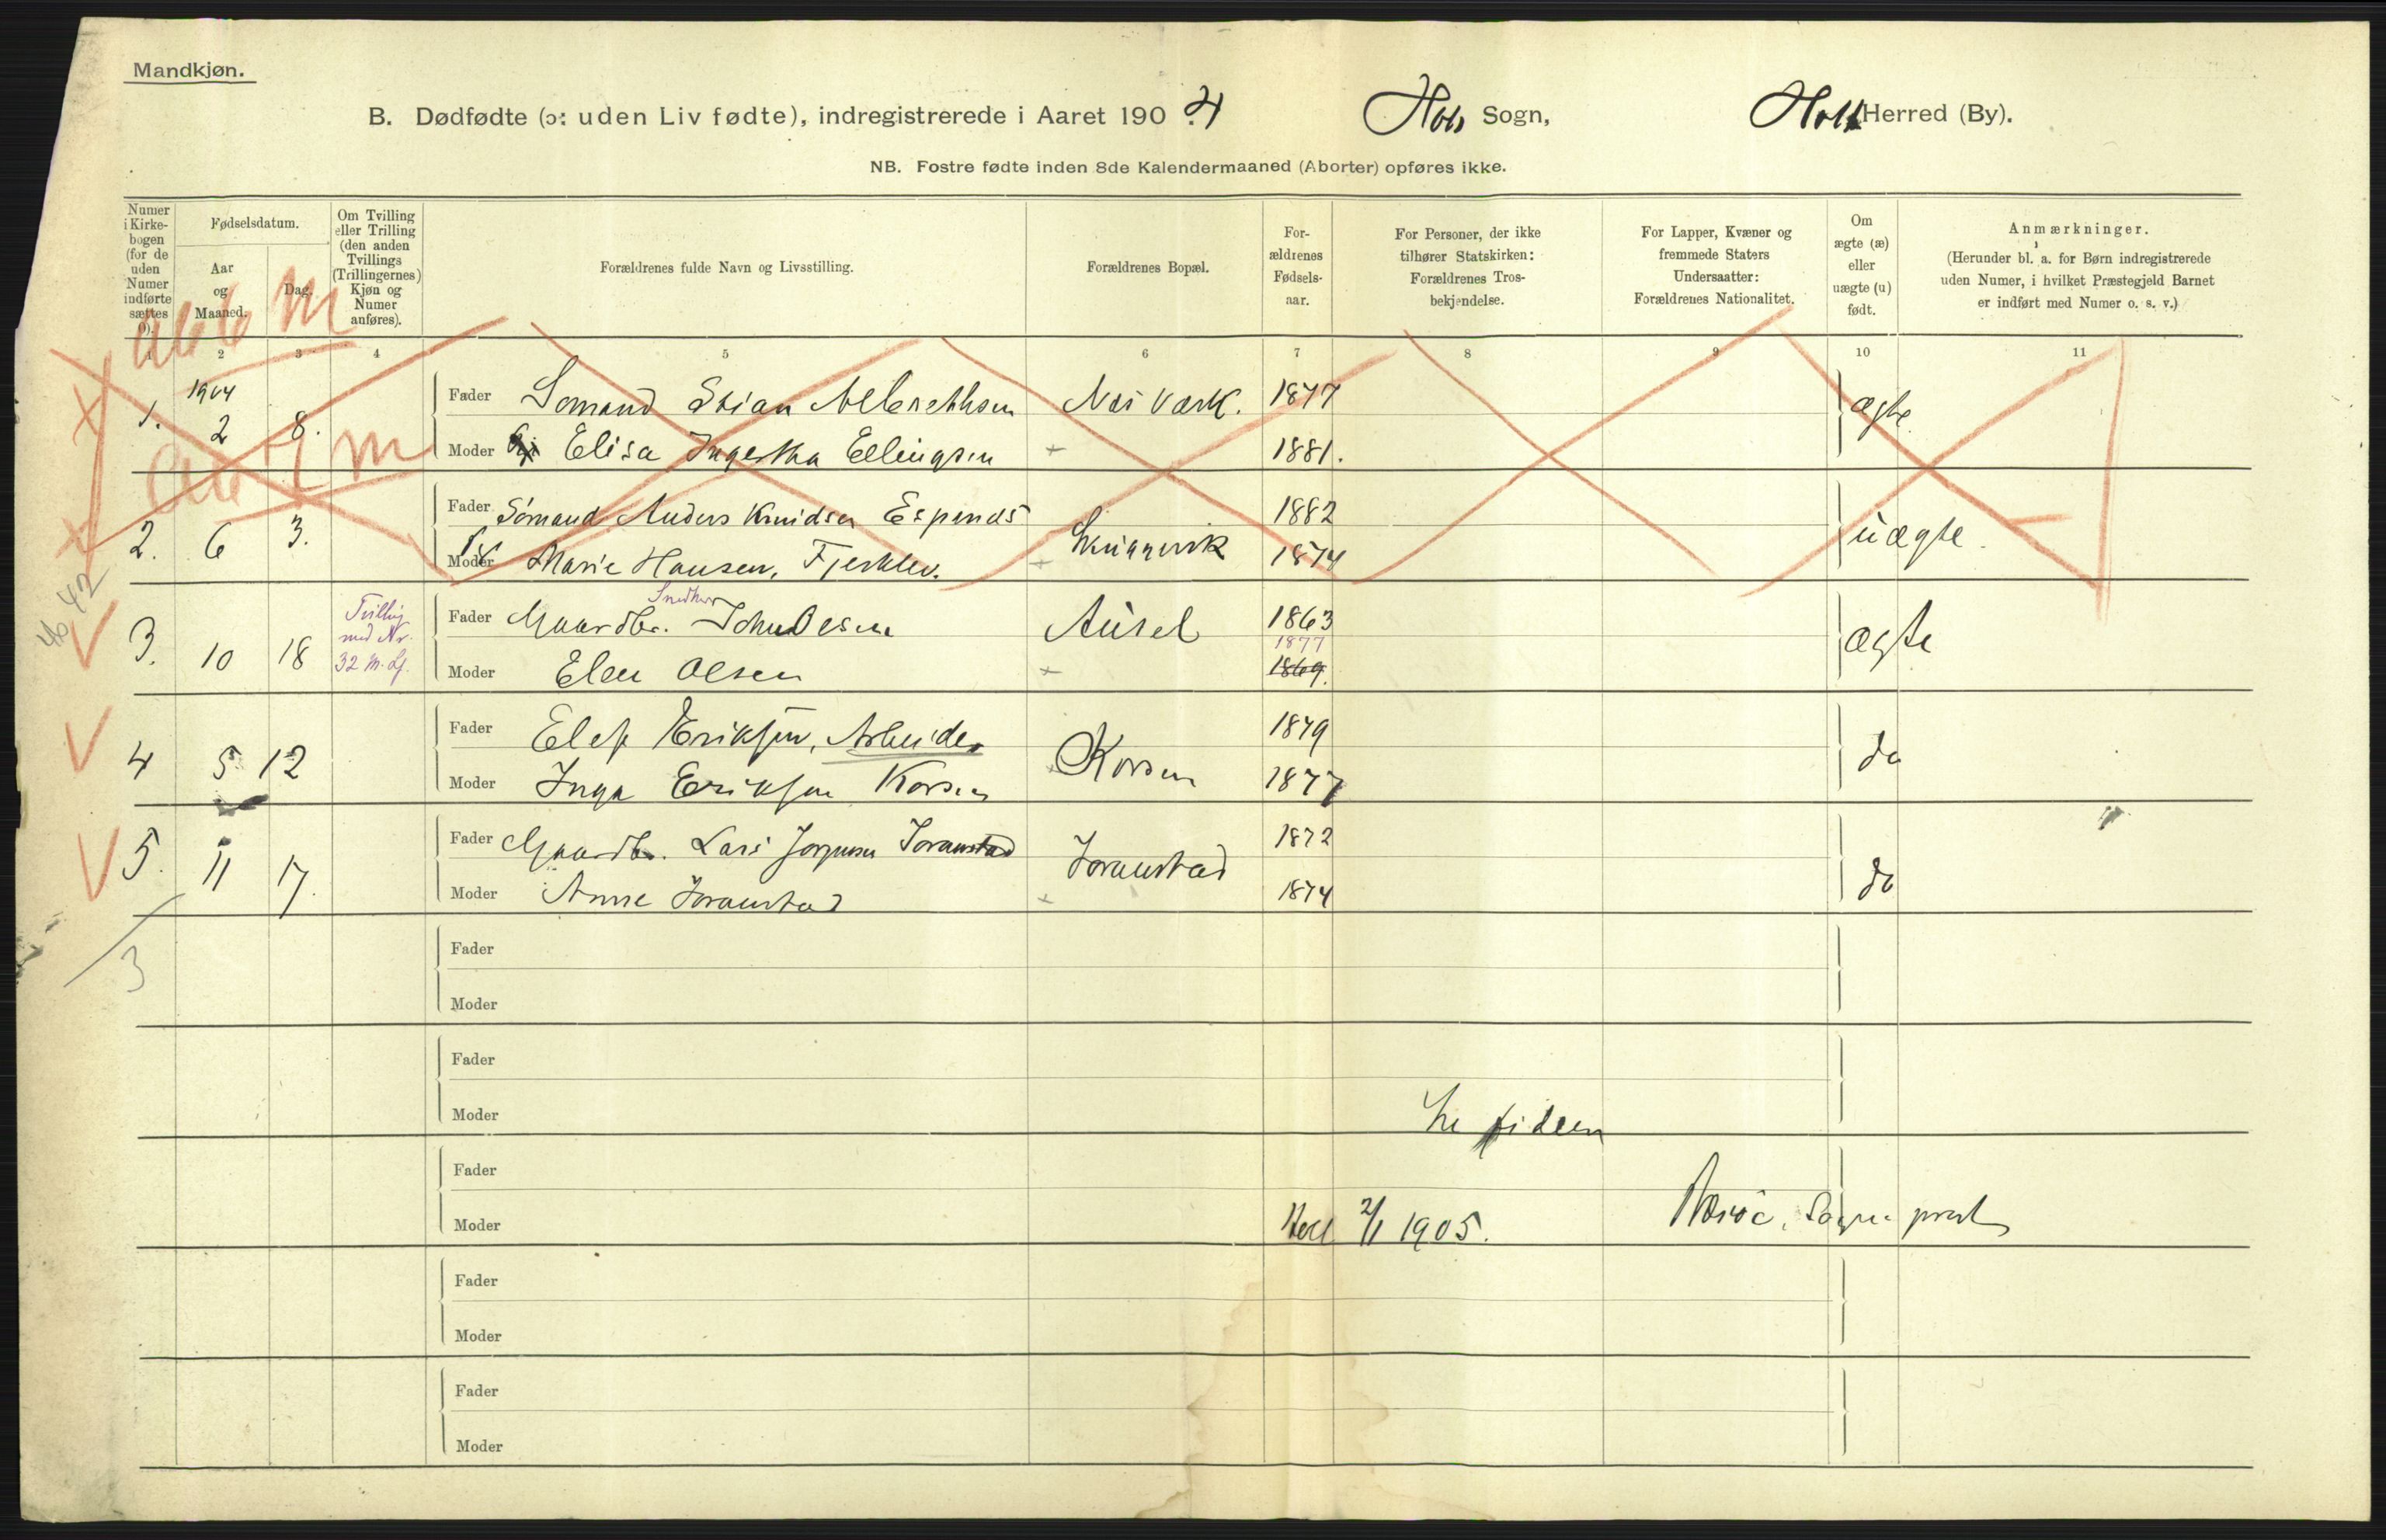 Mandkjøn.
B. Dødfødte (ɔ: uden Liv fødte), indregistrerede i Aaret 1904 Holt Sogn, Holt Herred (By).
NB. Fostre fødte inden 8de Kalendermaaned (Aborter) opføres ikke.
Numer i Kirkebogen (for de uden Numer indførte sættes 0).
Fødselsdatum.
Aar og Maaned.
Dag.
Om Tvilling eller Trilling (den anden Tvillings (Trillingernes) Kjøn og Numer anføres).
Forældrenes fulde Navn og Livsstilling.
Forældrenes Bopæl.
Forældrenes Fødselsaar.
For Personer, der ikke tilhører Statskirken: Forældrenes Trosbekjendelse.
For Lapper, Kvæner og fremmede Staters Undersaatter: Forældrenes Nationalitet.
Om ægte (æ) eller uægte (u) født.
Anmærkninger.
(Herunder bl. a. for Børn indregistrerede uden Numer, i hvilket Præstegjeld Barnet er indført med Numer o. s. v.)
1 2 3 4 5 6 7 8 9 10 11
1904
1. 2 8. Fader Sømand Stian Albrethsen Nes Værk. 1877 ægte
Moder Elisa Ellingsen 1881.
2. 6 3. Fader Sømand Anders Knudsen Espenes 1882 uægte.
Moder Marie Hansen, 1874
Snedker
3. 10 18 Tvilling med Nr. 32 M. Lf. Fader Gaardbr. John Olsen Ausel 1863 ægte
1877
Moder Elen Olsen 1869.
4 5 12 Fader Elef Eriksen, Arbeider Korsen 1879 do
Moder Inga Eriksen Korsen 1877
5. 11 17. Fader Gaardbr. Lars Jorgensen Joranstad Joranstad 1872 do
Moder Anne Joranstad 1874
3
Fader
Moder
Fader
Moder
Fader
Moder Holt 2/1 1905. Sogneprest
Fader
Moder
Fader
Moder